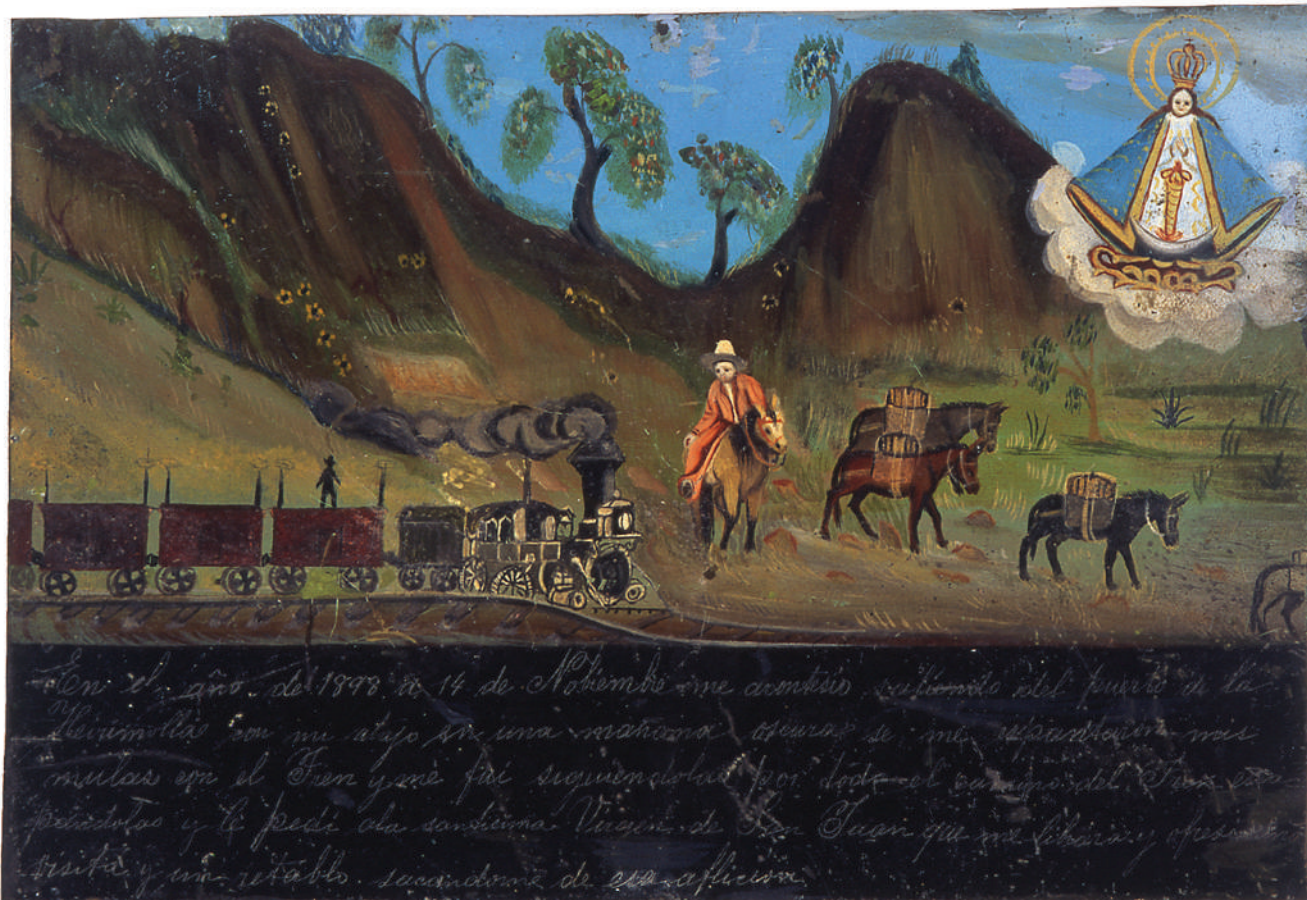 En el año de 1898 a 14 de Nobiembre me acontisio saliendo del puerto de la
con mi atajo en una mañana oscura se me espantaron mis
mulas con el Tren y me fui siguiendolas por todo el camino del Tren
y le pedi ala santicima Virgen de San Juan que me libara y ofresi
visita y un retablo sacandome de esa aflicion